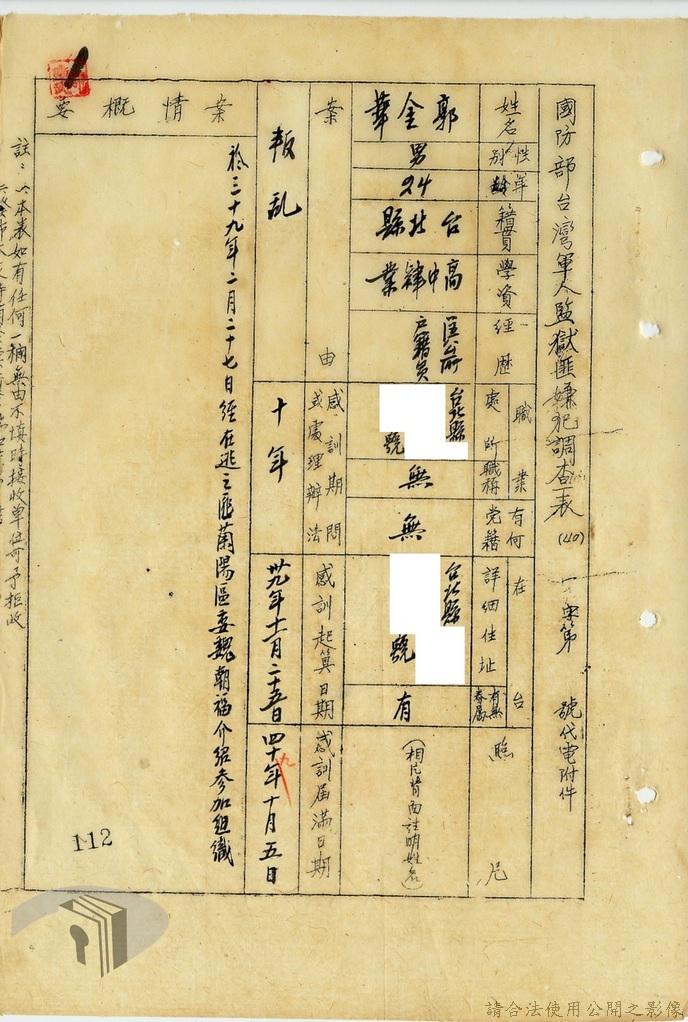 國防部台灣軍人監獄匪嫌犯調查表 (40) 字第 號代電附件
姓名 郭金華
性別 男
年齡 24
籍貫 台北縣
學資 高中肄業
經歷 區公所戶籍員
職業
處所 台北縣 號
職稱 無
有何党籍 無
在台
詳細住址 台北縣 號
有無眷屬 有
照片
(相片背面註明姓名)
案由 叛亂
感訓期間或處理辦法 十年
感訓起算日期 卅九年十二月二十五日
感訓屆滿日期 四十九年十月五日
案情概要
於三十九年二月二十七日經在逃之匪蘭陽區委魏朝福介紹參加組織
註:本表如有任何一欄無由不填時接收單位可予拒收
112
請合法使用公開之影像